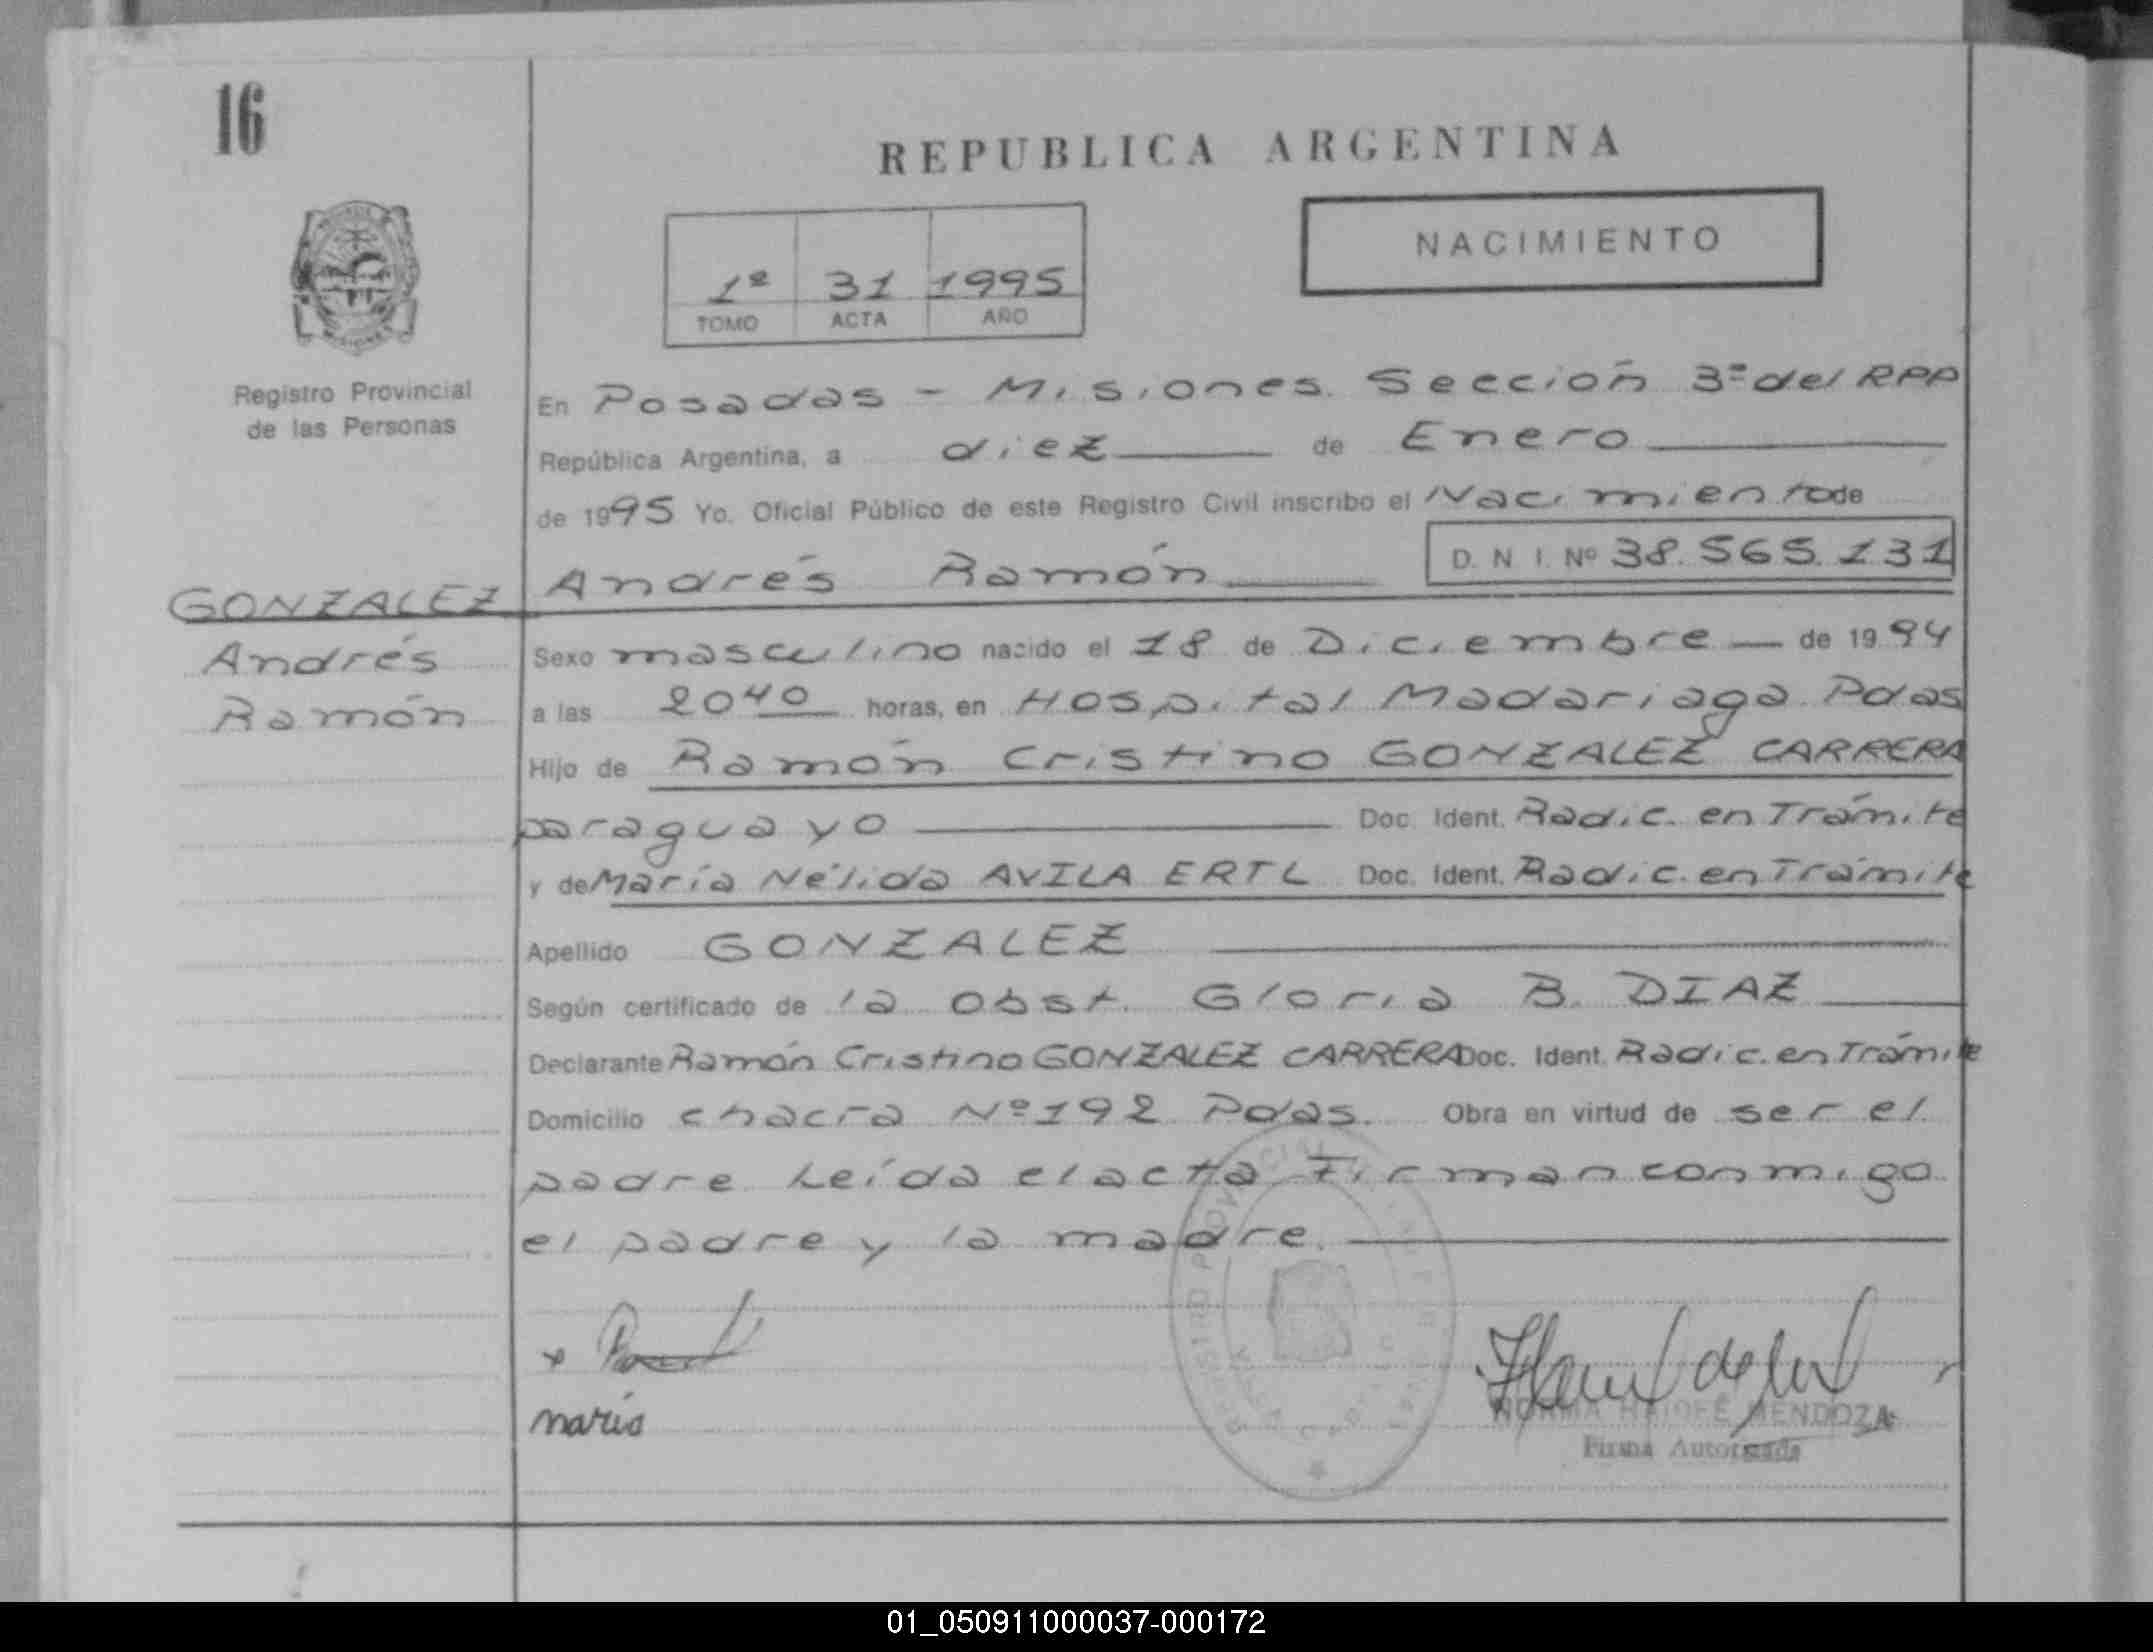 16
REPUBLICA ARGENTINA
NACIMIENTO
1º 31 1995
TOMO ACTA AÑO
Registro Provincial
de las Personas
En Posadas - Misiones. Sección 3ª del RPP
República Argentina, a diez de Enero
de 1995 Yo. Oficial Público de este Registro Civil inscribo el Nacimiento de
Andrés Ramón D. N. I. Nº 38.565.131
GONZALEZ
Andrés
Ramón
Sexo masculino nacido el 18 de Diciembre de 1994
a las 20 40 horas, en Hospital Madariaga Pdas
Hijo de Ramón Cristino GONZALEZ CARRERA
paraguayo Doc. Ident. Radic. en Trámite
y de María Nélida AVILA ERTL Doc. Ident. Radic. en Trámite
Apellido GONZALEZ
Según certificado de la Obst. Gloria B. DIAZ
Declarante Ramón Cristino GONZALEZ CARRERA Doc. Ident. Radic. en Trámite
Domicilio chacra Nº 192 Pdas. Obra en virtud de ser el
padre Leída el acta Firman conmigo
el padre y la madre.
maria
NORMA HAIDEE MENDOZA
Firma Autorizada
01_050911000037-000172